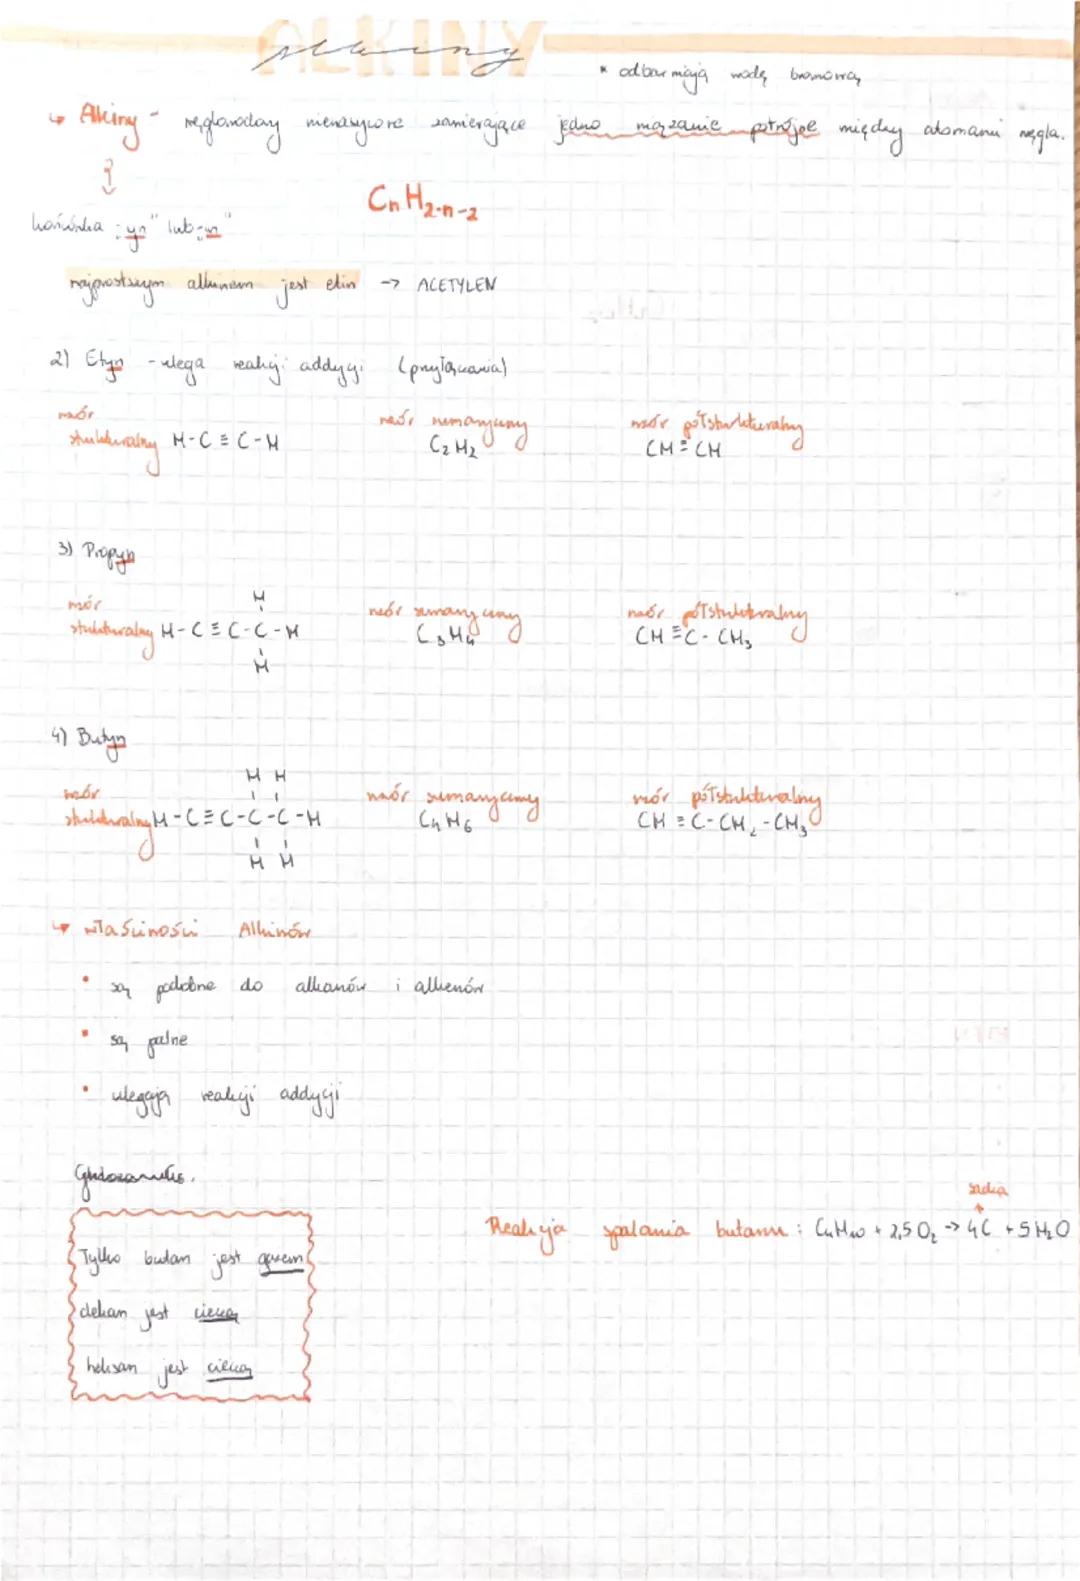 ALKINY
alkiny
* odbarwiają wodę bromową
↳ Alkiny - węglowodory nienasycone zawierające jedno wiązanie potrójne między atomami węgla.
końcówka "-yn" lub "-in"
CnH2·n-2
najprostszym alkinem jest etin -> ACETYLEN
2) Etyn - ulega reakcji addycji (przyłączania)
wzór strukturalny H-C≡C-H
wzór sumaryczny C2H2
wzór półstrukturalny CH≡CH
3) Propyn
H
wzór strukturalny H-C≡C-C-H
H
wzór sumaryczny C3H4
wzór półstrukturalny CH≡C-CH3
4) Butyn
H H
wzór strukturalny H-C≡C-C-C-H
H H
wzór sumaryczny C4H6
wzór półstrukturalny CH≡C-CH2-CH3
↳ właściwości Alkinów
• są podobne do alkanów i alkenów
• są palne
• ulegają reakcji addycji
Tylko butan jest gazem
dekan jest cieczą
heksan jest cieczą
sadza
Reakcja spalania butanu: C4H10 + 2,5O2 -> 4C + 5H2O